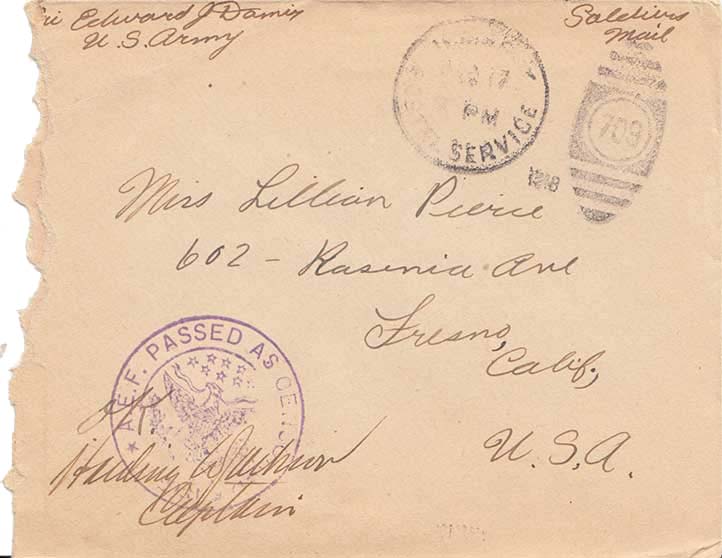 Edward J Damir
U.S. Army
Soldiers
Mail
PM
SERVICE
1918
709
Miss Lillian Pierce
602 - Rasenia Ave
Fresno,
Calif.,
U.S.A.
A.E.F. PASSED AS CENSORED
OK
Captain